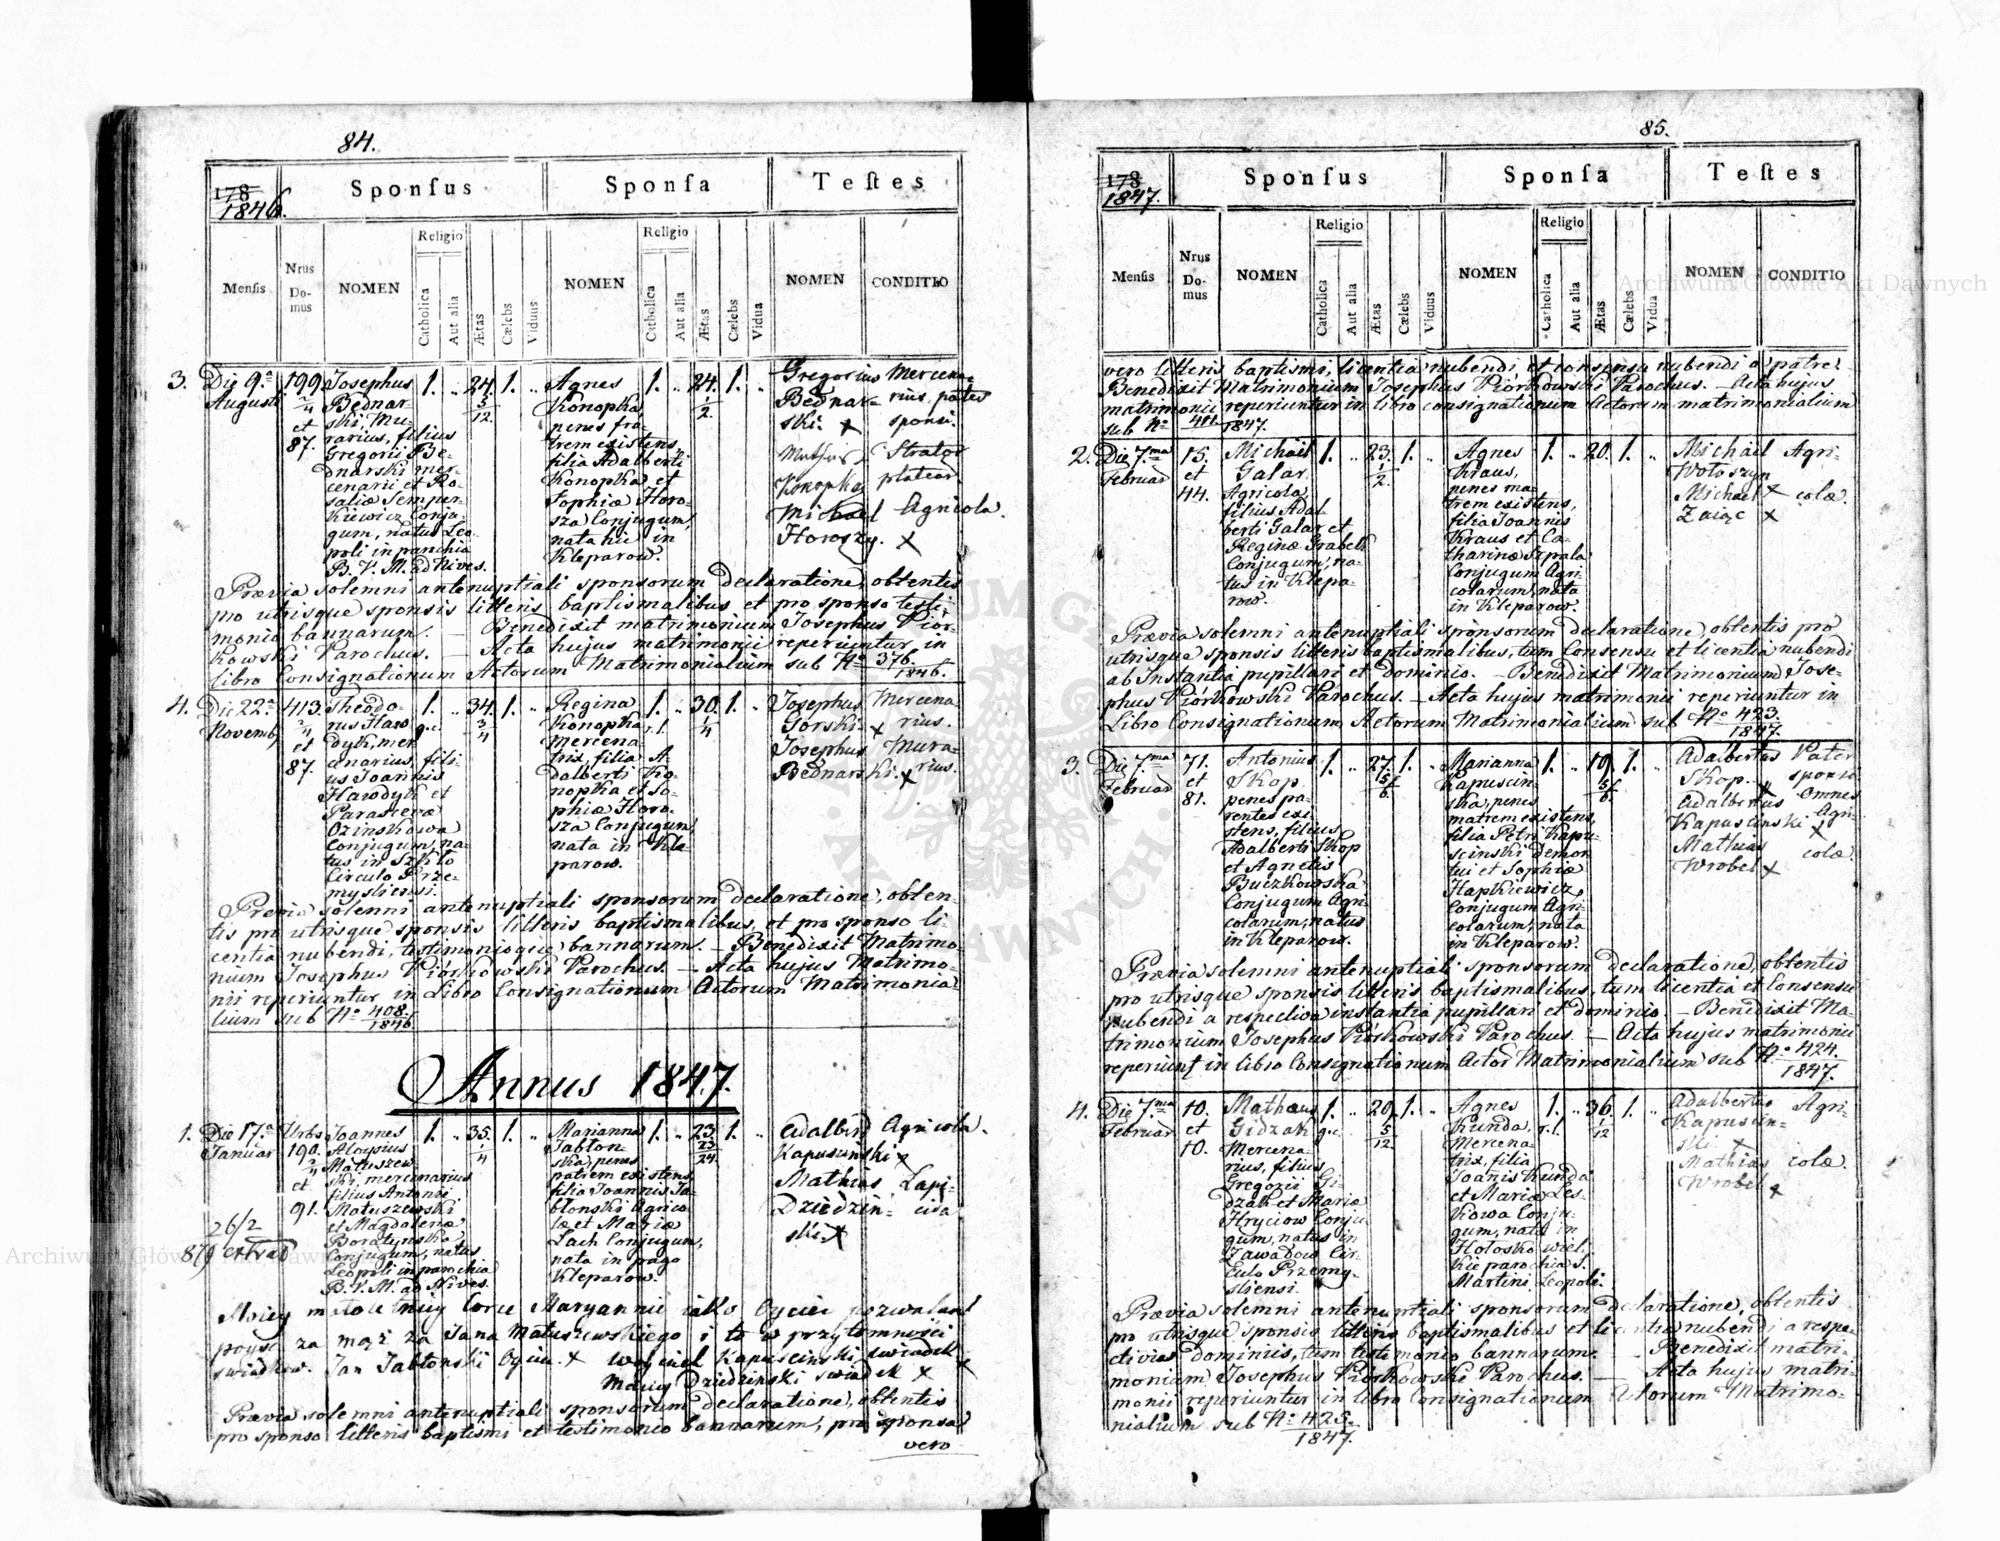 84.
178
1846.
Sponſus
Sponſa
Teſtes
Menſis
Nrus Do- mus
NOMEN
Religio
Catholica
Aut alia
Ætas
Cælebs
Viduus
NOMEN
Religio
Catholica
Aut alia
Ætas
Cælebs
Vidua
NOMEN
CONDITIO
3. Die 9.a
Augusti
199
2/4
et
87.
Josephus
Bednar-
ski, Mu-
rarius, filius
Gregorii Be-
dnarski mer-
cenarii et Ro-
saliæ Semper-
kiewicz Conju-
gum, natus Leo-
poli in parochia
B. V. M. ad Nives.
1. .. 24. 1. ..
5/12.
Agnes
Konopka
penes fra-
trem existens,
filia Adalberti
Konopka et
Sophiæ Horo-
sza Conjugum,
nata hic in
Kleparow.
1. .. 24. 1. ..
1/2.
Gregorius Mercena-
Bednar- rius, pater
ski. x sponsi.
Mathias Strator
Konopka platear.
Michael Agricola.
Horoszy. x
Prævia solemni antenuptiali sponsorum declaratione, obtentis
pro utrisque sponsis litteris baptismalibus et pro sponso testi-
monio bannorum. — Benedixit matrimonium Josephus Pior-
kowski Parochus. — Acta hujus matrimonii reperiuntur in
libro Consignationum Actorum Matrimonialium sub No 376.
1846.
4. Die 22.a
Novemb
413.
2/4
et
87.
Theodo-
rus Haw
dyk, mer
cenarius, fili-
us Joannis
Hawdyk et
Parascevæ
Ozinskowa
Conjugum, na-
tus in Szkło
Circulo Prze-
mysliensi.
1. .. 34. 1. ..
g.c. 3/4
Regina
Konopka
Mercena
trix, filia A
dalberti Ko-
nopka et So-
phiæ Horo-
sza Conjugum,
nata in Kle
parow.
1. .. 30. 1. ..
r.l. 1/4
Josephus Mercena
Gorski x rius.
Josephus Mura-
Bednarski. x rius.
Prævia solemni antenuptiali sponsorum declaratione, obten-
tis pro utrisque sponsis litteris baptismalibus, et pro sponso li-
centia nubendi, testimonioque bannorum. — Benedixit Matrimo-
nium Josephus Piorkowski Parochus. — Acta hujus Matrimo-
nii reperiuntur in Libro Consignationum Actorum Matrimonia-
lium sub No 408.
1846.
Annus 1847.
1. Die 17.a
Januar
Urbs
190.
2/4
et
91.
26/2
879 extrad
Joannes
Aloysius
Matuszew-
ski, mercenarius
filius Antonii
Matuszewski
et Magdalenæ
Boratynska
Conjugum, natus
Leopoli in parochia
B. V. M. ad Nives.
1. .. 35. 1. ..
1/4
Marianna
Jabłon-
ska, penes
patrem existens,
filia Joannis Ja-
błonski Agrico
læ et Mariæ
Lach Conjugum,
nata in pago
Kleparow.
1. .. 23. 1. ..
23/24.
Adalbert Agricola.
Kapuscinski x
Mathias Lapi-
Dziedzin- cida
ski x
Moiey małoletniey Corce Maryannie iako Oyciec pozwalam
poyść za mąż za Jana Matuszewskiego i to w przytomności
swiadkow. Jan Jabłonski Oyciec. x Woyciech Kapuscinski swiadek x
Maciey Dziedzinski swiadek x
Prævia solemni antenuptiali sponsorum declaratione, obtentis
pro sponso litteris baptismi et testimonio bannorum, pro sponsa
vero
85.
178
1847.
Sponſus
Sponſa
Teſtes
Menſis
Nrus Do- mus
NOMEN
Religio
Catholica
Aut alia
Ætas
Cælebs
Viduus
NOMEN
Religio
Catholica
Aut alia
Ætas
Cælebs
Vidua
NOMEN
CONDITIO
vero litteris baptismi, licentia nubendi, et consensu nubendi a patre.
Benedixit Matrimonium Josephus Piorkowski Parochus. — Acta hujus
matrimonii reperiuntur in libro consignationum Actorum matrimonialium
sub No 411.
1847.
2. Die 7.ma
Februar
15.
et
44.
Michael
Galar
Agricola
filius Adal
berti Galar et
Reginæ Grabek
Conjugum, na-
tus in Klepa-
row.
1. .. 23. 1. ..
1/2.
Agnes
Kraus,
penes ma-
trem existens,
filia Joannis
Kraus et Ca-
tharinæ Szpala
Conjugum Agri-
colarum, nata
in Kleparow.
1. .. 20. 1. ..
Michael Agri-
Wołoszyn
Michael x colæ.
Zaiąc x
Prævia solemni antenuptiali sponsorum declaratione, obtentis pro
utrisque sponsis litteris baptismalibus, tum Consensu et licentia nubendi
ab Instantia pupillari et dominio. — Benedixit Matrimonium Jose-
phus Piórkowski Parochus. — Acta hujus matrimonii reperiuntur in
Libro Consignationum Actorum Matrimonialium sub No 423.
1847.
3. Die 7.ma
Februar
71.
et
81.
Antonius
Skop
penes pa-
rentes exi-
stens, filius
Adalberti Skop
et Agnetis
Buczkowska
Conjugum Agri
colarum, natus
in Kleparow.
1. .. 27. 1. ..
5/6.
Marianna
Kapuscin-
ska, penes
matrem existens,
filia Petri Kapu-
scinski demor
tui et Sophiæ
Hapkiewicz,
Conjugum Agri-
colarum, nata
in Kleparow.
1. .. 19. 1. ..
5/6.
Adalbertus Pater
Skop. x sponsi
Adalbertus Omnes
Kapuscinski x Agri-
Mathias colæ.
Wrobel x
Prævia solemni antenuptiali sponsorum declaratione, obtentis
pro utrisque sponsis litteris baptismalibus, tum licentia et Consensu
nubendi a respectiva instantia pupillari et dominio. — Benedixit Ma-
trimonium Josephus Piórkowski Parochus. — Acta hujus matrimonii
reperiunt in libro Consignationum Actor Matrimonialium sub No 424.
1847.
4. Die 7.ma
Februar
10.
et
10.
Mathæus
Gidzak
Mercena-
rius, filius
Gregorii Gi-
dzak et Maria
Hryciow Conju
gum, natus in
Zawadow Cir-
culo Przemy-
sliensi.
1. .. 29. 1. ..
g.c. 5/12.
Agnes
Kunda,
Mercena-
trix, filia
Joanis Kunda
et Mariæ Les-
kowa Conju-
gum, nata in
Hołosko wiel-
kie parochia S.
Martini Leopoli.
1. .. 36. 1. ..
r.l. 1/12
Adalbertus Agri-
Kapuscin-
ski x
Mathias colæ.
Wrobel x
Prævia solemni antenuptiali sponsorum declaratione, obtentis
pro utrisque sponsis litteris baptismalibus et licentia nubendi a respe-
ctivis dominiis, tum testimonio bannorum. — Benedixit matri-
monium Josephus Piorkowski Parochus. — Acta hujus matri-
monii reperiuntur in libro Consignationum Actorum Matrimo-
nialium sub No 425.
1847.
Archiwum Główne Akt Dawnych
Archiwum Główne Akt Dawnych